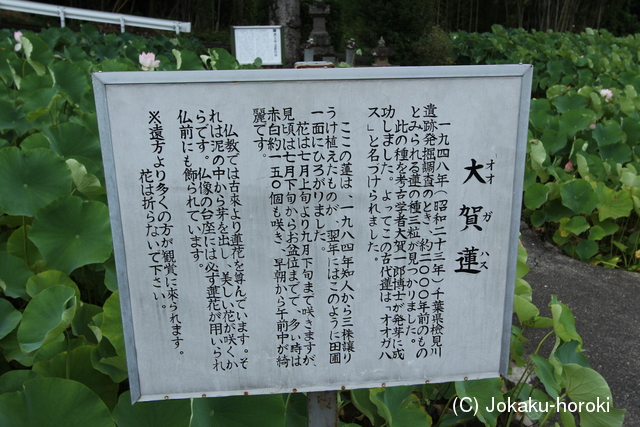 大賀蓮
オオガハス
一九四八年(昭和二十三年)千葉県検見川
遺跡発掘調査のとき、約二〇〇〇年前のもの
とみられる蓮の種三粒が見つかりました。
此の種を考古学者大賀一郎博士が発芽に成
功しました。よってこの古代蓮は「オオガハ
ス」と名づけられました。
ここの蓮は、一九八四年知人から三株譲り
うけ植えたものが、翌年にはこのように田圃
一面にひろがりました。
花は七月上旬より九月下旬まで咲きますが、
見頃は七月下旬からお盆位までで、多い時は
赤白約一五〇個も咲き、早朝から午前中が綺
麗です。
仏教では古来より蓮花を尊んでいます。そ
れは泥の中から芽を出し、美しい花が咲くか
らです。仏像の台座には必ず蓮花が用いられ
仏前にも飾られています。
※遠方より多くの方が観賞に来られます。
花は折らないで下さい。
(C) Jokaku-horoki